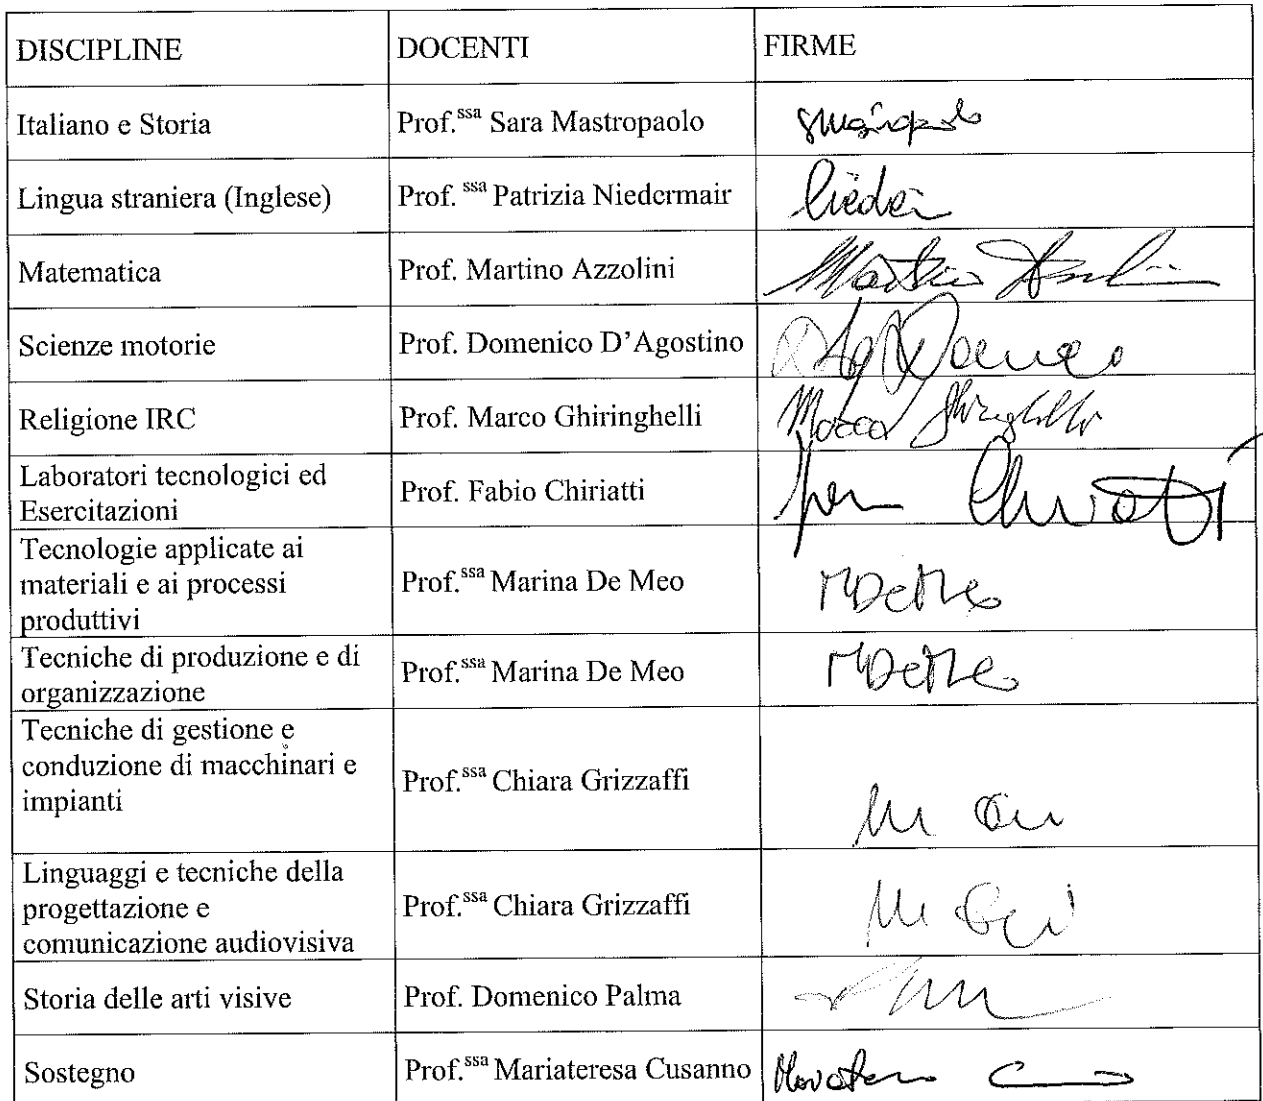 DISCIPLINE DOCENTI FIRME
Italiano e Storia Prof.ssa Sara Mastropaolo
Lingua straniera (Inglese) Prof. ssa Patrizia Niedermair
Matematica Prof. Martino Azzolini
Scienze motorie Prof. Domenico D'Agostino
Religione IRC Prof. Marco Ghiringhelli
Laboratori tecnologici ed
Esercitazioni
Prof. Fabio Chiriatti
Tecnologie applicate ai
materiali e ai processi
produttivi
Prof.ssa Marina De Meo
Tecniche di produzione e di
organizzazione
Prof.ssa Marina De Meo
Tecniche di gestione e
conduzione di macchinari e
impianti
Prof.ssa Chiara Grizzaffi
Linguaggi e tecniche della
progettazione e
comunicazione audiovisiva
Prof.ssa Chiara Grizzaffi
Storia delle arti visive Prof. Domenico Palma
Sostegno Prof.ssa Mariateresa Cusanno